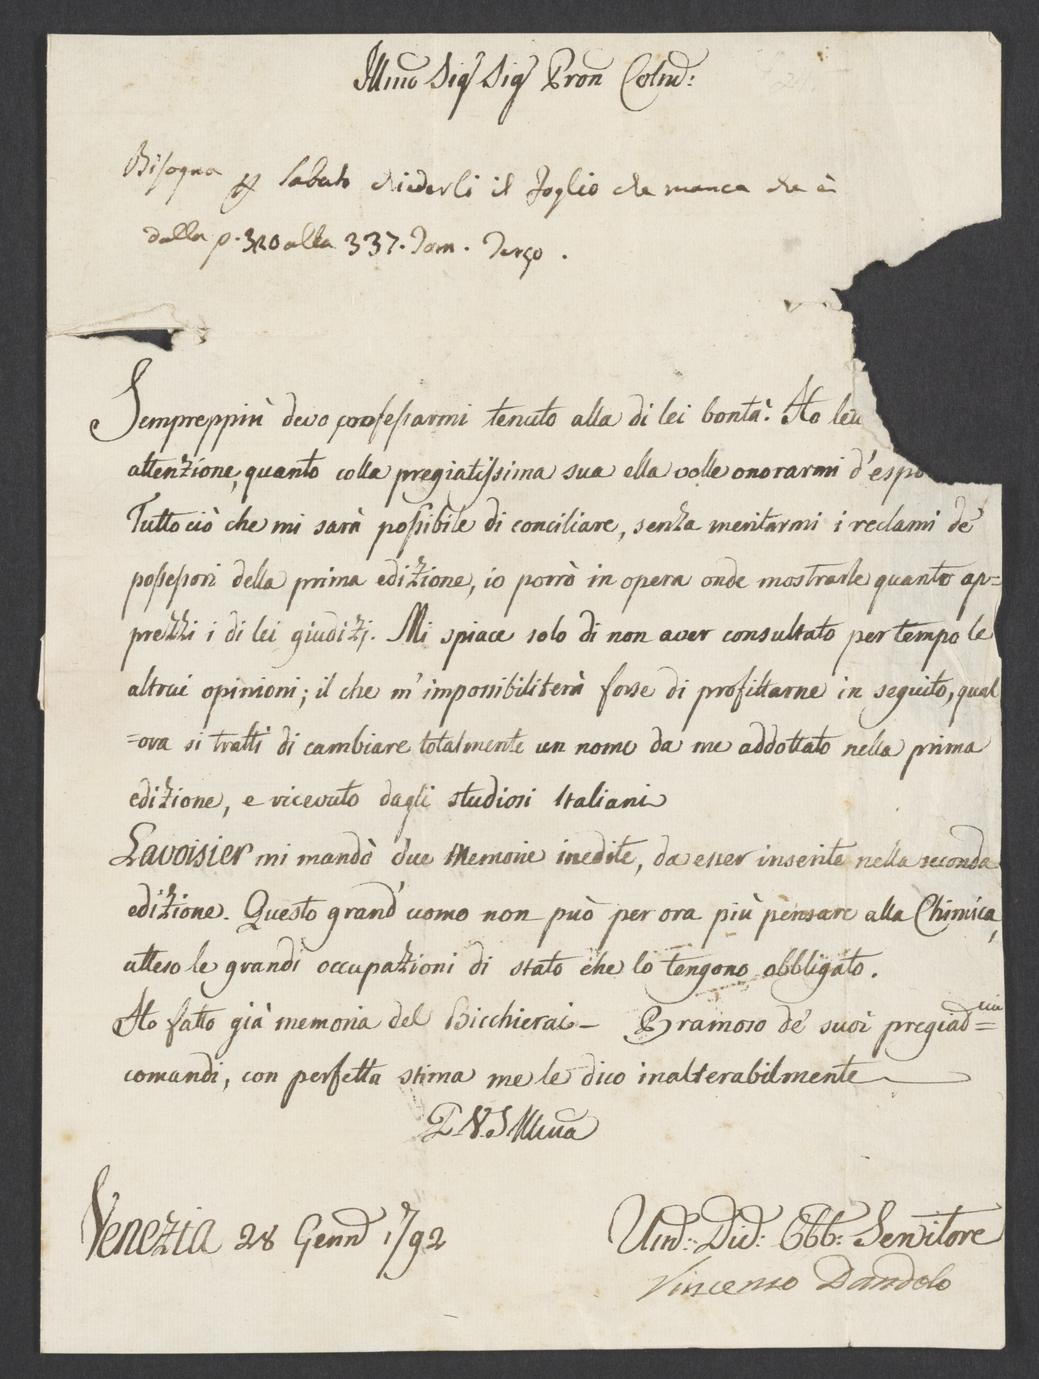 Illmo Sigr Sigr Pron Colmo:
Bisogna p Sabato chiederli il foglio che manca che è
dalla p. 320 alla 337. Tom. Terzo.
Sempreppiù devo professarmi tenuto alla di lei bontà. Ho
attenzione, quanto colla pregiatissima sua ella volle onorarmi
Tutto ciò che mi sarà possibile di conciliare, senza meritarmi i reclami de'
possessori della prima edizione, io porrò in opera onde mostrarle quanto ap=
prezzi i di lei giudizj. Mi spiace solo di non aver consultato per tempo le
altrui opinioni; il che m'impossibiliterà forse di profittarne in seguito, qual
=ora si tratti di cambiare totalmente un nome da me addottato nella prima
edizione, e ricevuto dagli studiosi Italiani
Lavoisier mi mandò due Memorie inedite, da esser inserite nella seconda
edizione. Questo grand'uomo non può per ora più pensare alla Chimica,
atteso le grandi occupazioni di stato che lo tengono obbligato.
Ho fatto già memoria del Bicchierai — Bramoso de' suoi pregiadmi=
comandi, con perfetta stima me le dico inalterabilmente
D V. S Illma
Venezia 28 Genno 1792
Umo: Divo: Obbo: Servitore
Vincenso Dandolo